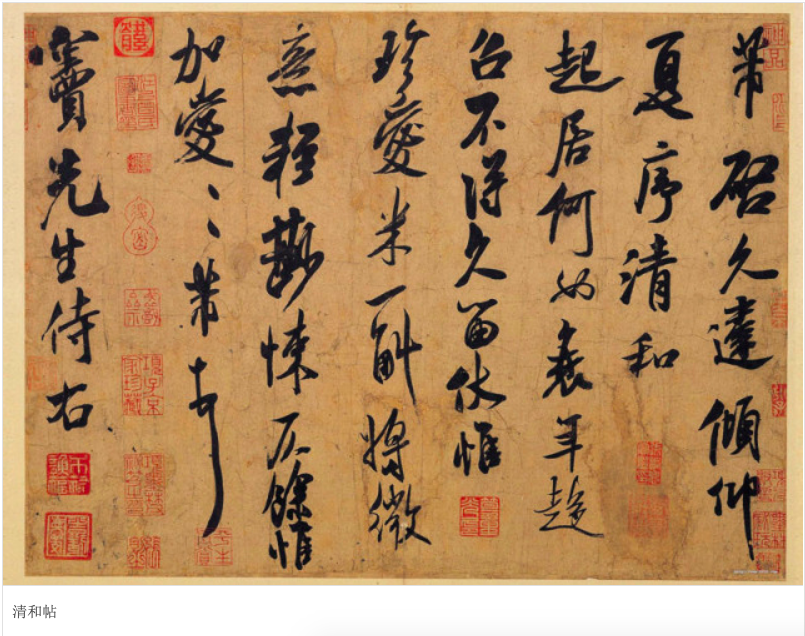 芾启久違傾仰
夏序清和
起居何如衰年趍
召不得久留伏惟
珍愛米一斛將微
意輕尠悚仄餘惟
加愛、、芾頓
竇先生侍右
清和帖